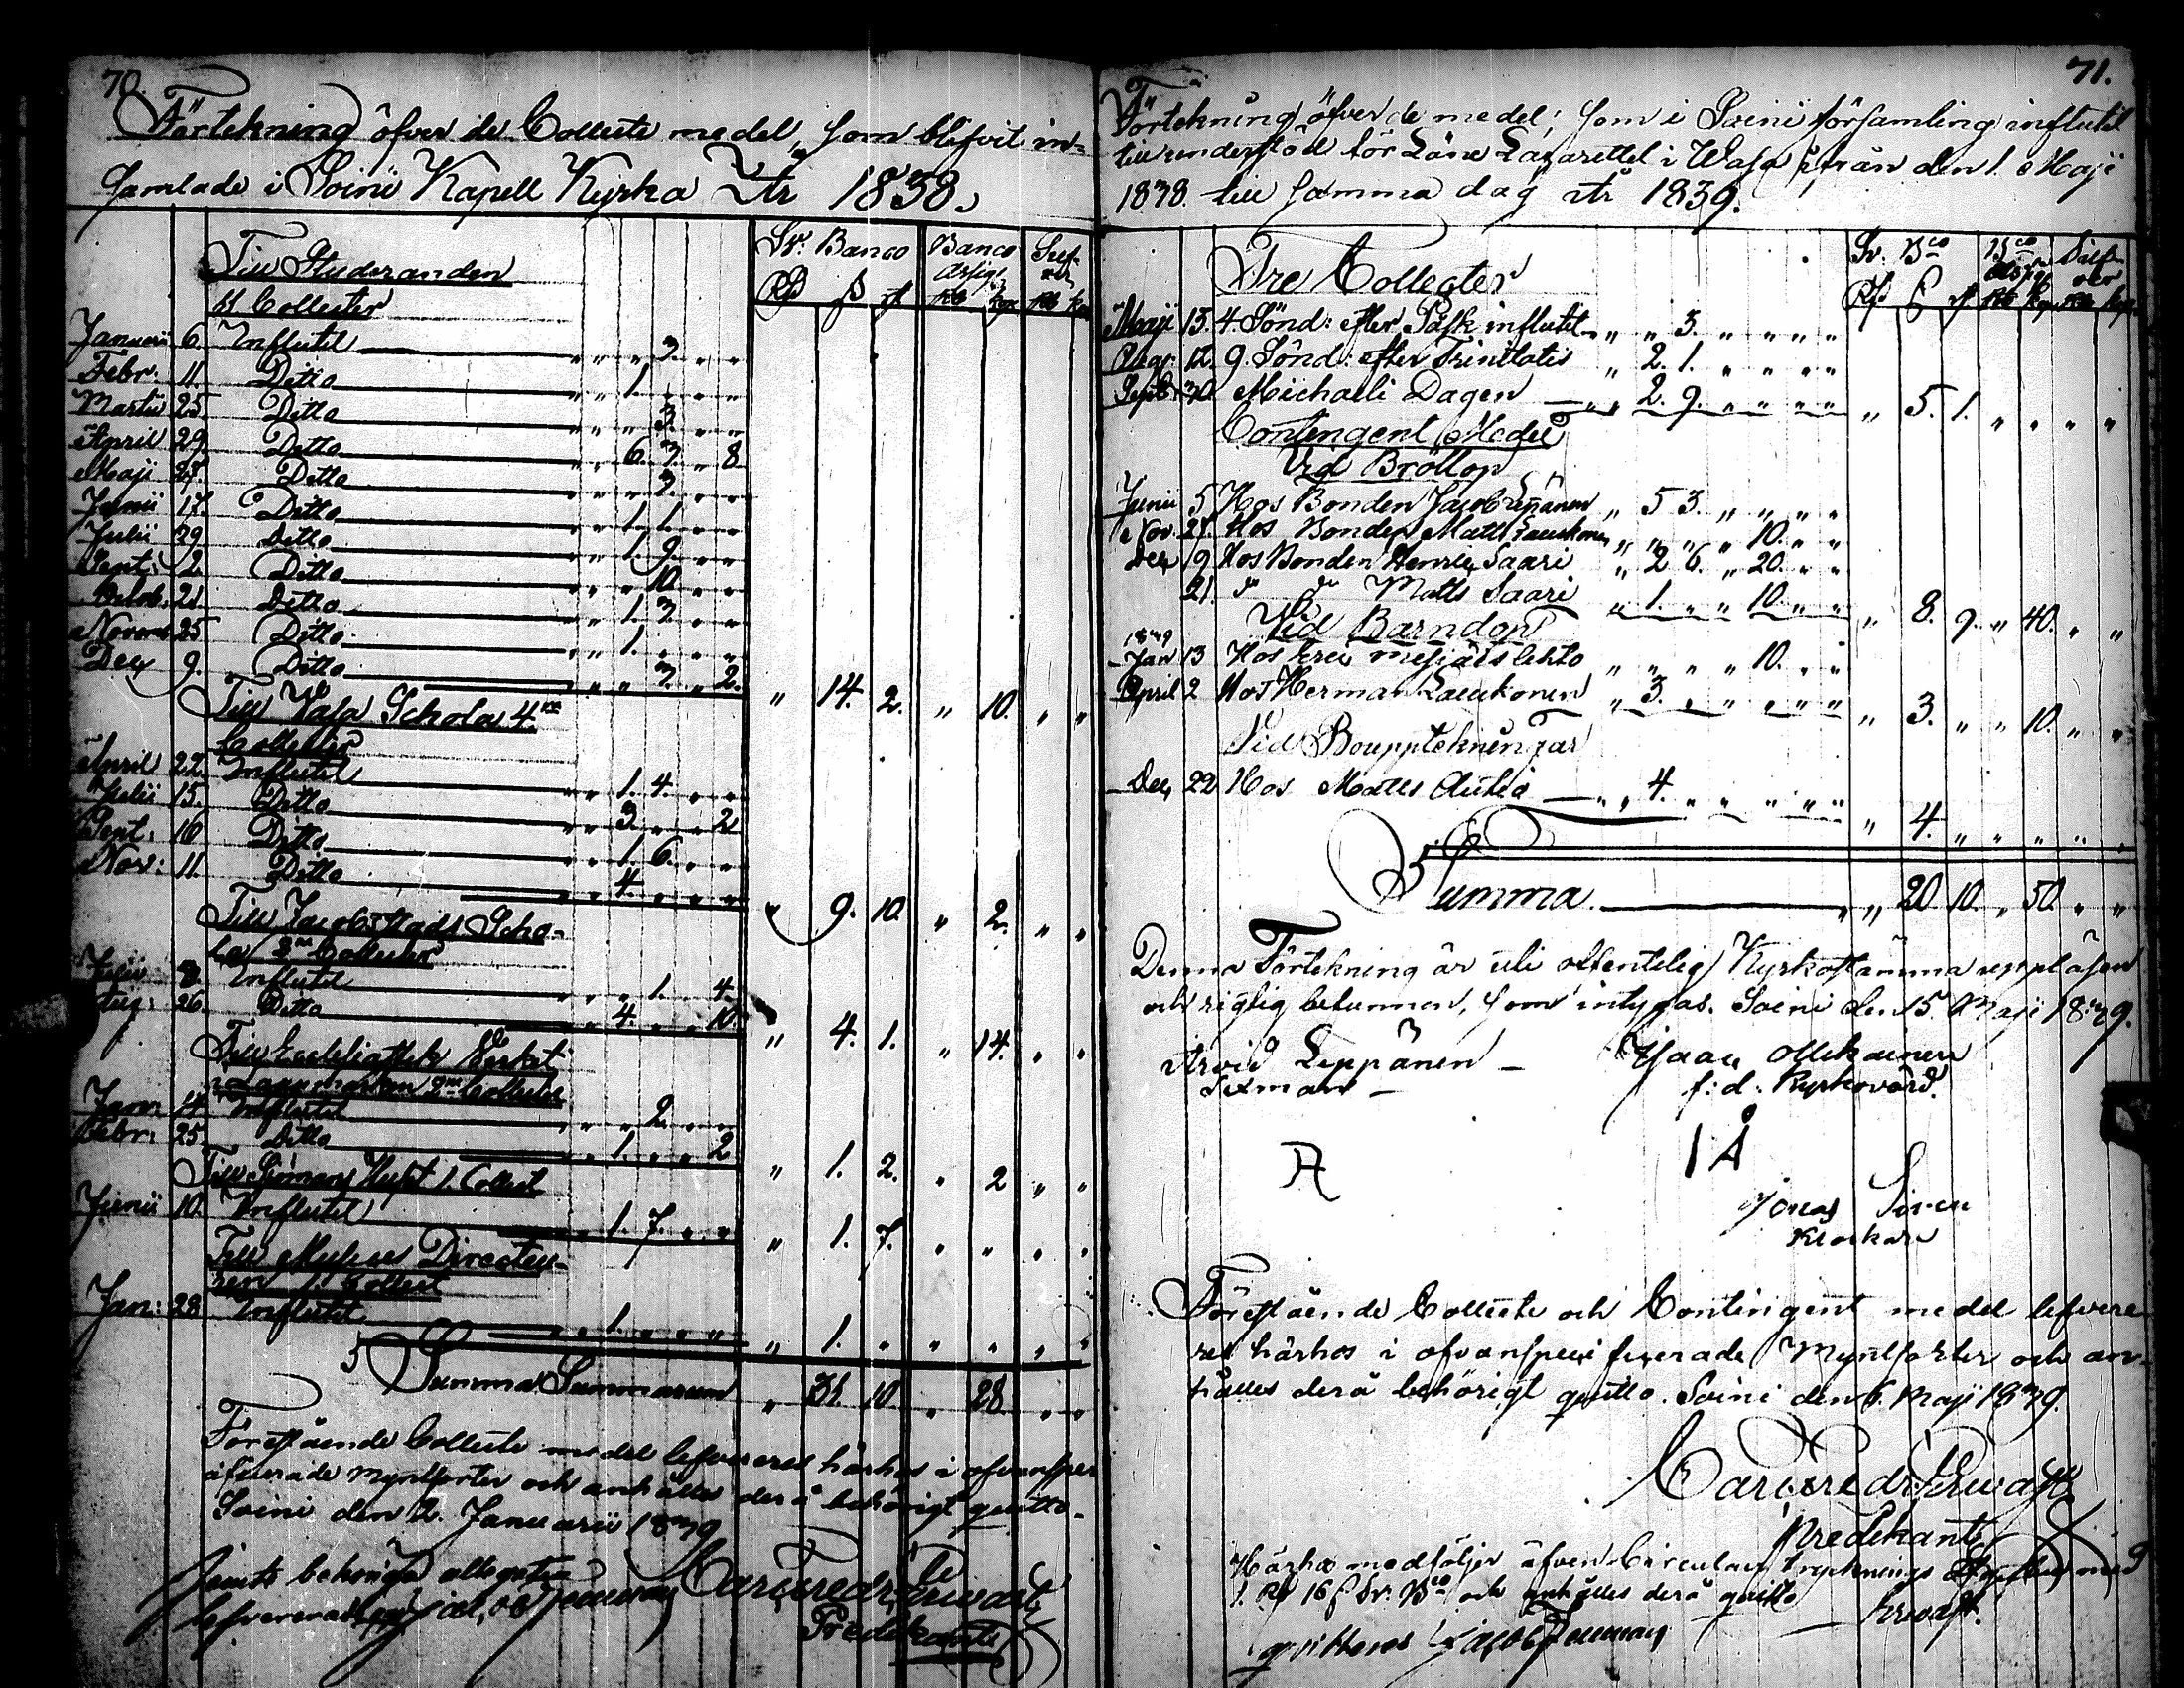 70.
Förtekning öfver de Collecte medel, som blifvit in-
samlade i Soini Kapell Kyrka År 1838.
Sv. Banco Banco Assign. Silf-
ver
Rd ß rf Rb kop Rb kop
Till Studeranden
11 Collecter
Januarii 6. Influtit " " " 2. " " "
Febr: 11. Ditto " " 1. " " " "
Martii 25. Ditto " " " 3. " " "
April 29. Ditto " " 6. 7. " 8
Maji 27. Ditto " " " 2. " " "
Junii 17. Ditto " " 1. 1. " " "
Julii 29 Ditto " " 1. 9. " " "
Sept: 2. Ditto " " " 10. " " "
Octob. 21. Ditto " " 1. 3. " " "
Novemb 25 Ditto " " 1. " " " "
Dec 9. Ditto " " " 7. " 2. " 14. 2. " 10. " "
Till Vasa Schola 4ra
Collecter
April 22. Influtit " " 1. 4. " " "
Julii 15. Ditto " " 3. " " 2
Sept: 16 Ditto " " 1. 6. " " "
Nov: 11. Ditto " " 4. " " " " " 9. 10. " 2. " "
Till Jacobstads Scho-
la 2ne Collecter
Julii 8. Influtit " " " 1. " 4.
Aug: 26. Ditto " " 4. " " 10. " 4. 1. " 14. " "
Till Ecclesiastik Verket
i Lappmarken 2ne Collecter
Jan: 14. Influtit " " " 2. " " "
Febr: 25 Ditto " " 1. " " 2 " 1. 2. " 2 " "
Till 1. Collect
Junii 10. Influtit " " 1. 7. " " " " 1. 7. " " " "
Till Musices Directeu-
ren 1. Collect
Jan: 28 Influtit " " 1. " " " " " 1. " " " " "
Summa Summarum " 31. 10. " 28 " "
Förestående Collecte medel lefvereras härhos i ofvanspec
ificerade myntsorter och anhålles derå behörigt quitto.
Soini den 2. Januarii 1839
Carl Fredr:
Predikant
71.
Förtekning öfver de medel, som i Soini församling influtit
till understöd för Läns Lazarettet i Wasa ifrån den 1. Maji
1838. till samma dag år 1839.
Sv. Bco Bco Assign Silf-
ver
Rd ß rf Rb kop Rb kop
Tre Collecter
Maji 13. 4. Sönd: efter Påsk influtit " " 3. " " " " "
Aug: 12. 9. Sönd: efter Trinitatis " 2. 1. " " " "
Sept: 30 Michaeli Dagen " 2. 9. " " " " " 5. 1. " " " "
Contingent Medel
Vid Bröllop
Junii 5 Hos Bonden Jacob Leppänen " 5 3. " " " "
Nov. 27. Hos Bonden Matts Laukonen " " " " 10. " "
Dec 19 Hos Bonden Henric Saari " 2 6. " 20. " "
21. d d Matts Saari " 1. " " 10. " " " 8. 9. " 40. " "
Vid Barndop
1839
Jan 13 Hos lehto " " " " 10. " "
April 2 Hos Herman Laukonen " 3. " " " " " " 3. " " 10. " "
Vid Bouppteknungar
Dec 22 Hos Matts Autio " " 4. " " " " " " 4. " " " " "
Summa " " 20. 10. " 50. " "
Denna Förtekning är uti offentelig Kyrkostämma uppläsen
och rigtig befunnen, som intygas. Soini den 15. Maji 1839.
Arvid Leppänen – Isaac Ollikainen
Sexman – f: d: Kyrkovärd.
Jonas Siren
Klockare
Förestående Collecte och Contingent medel lefvere
ras härhos i ofvanspecificerade Myntsorter och an-
hålles derå behörigt quitto. Soini den 6. Maji 1839.
Carl Fredr:
Predikant
Härhos medföljer äfven Circulair tryckings med
1. Rd 16 ß Sv: Bco och anhålles derå quitto